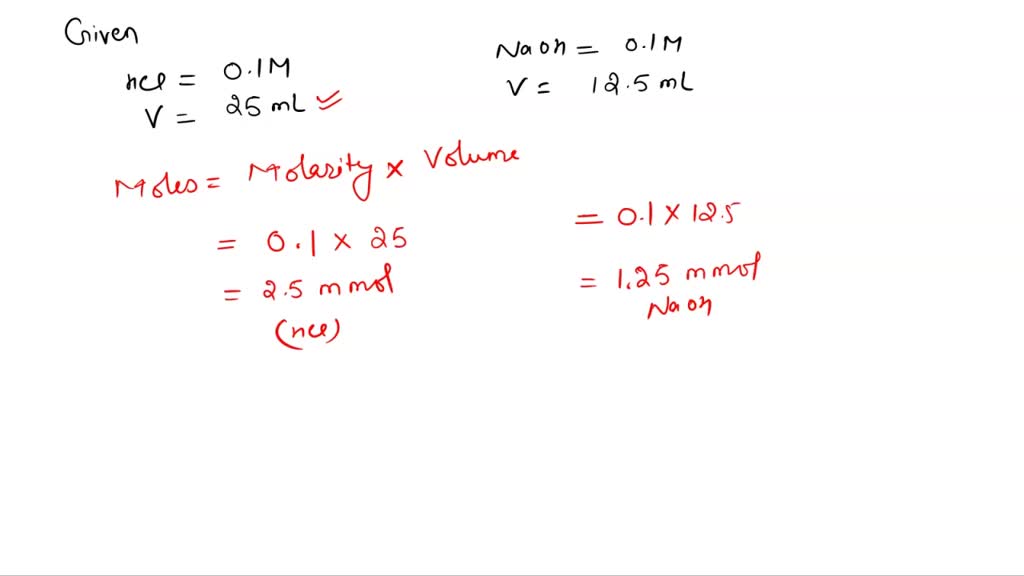 Given
HCl = 0.1M
V = 25 mL ✓
NaOH = 0.1M
V = 12.5 mL
Moles = Molarity × Volume
= 0.1 × 25
= 2.5 mmol
(HCl)
= 0.1 × 12.5
= 1.25 mmol
NaOH